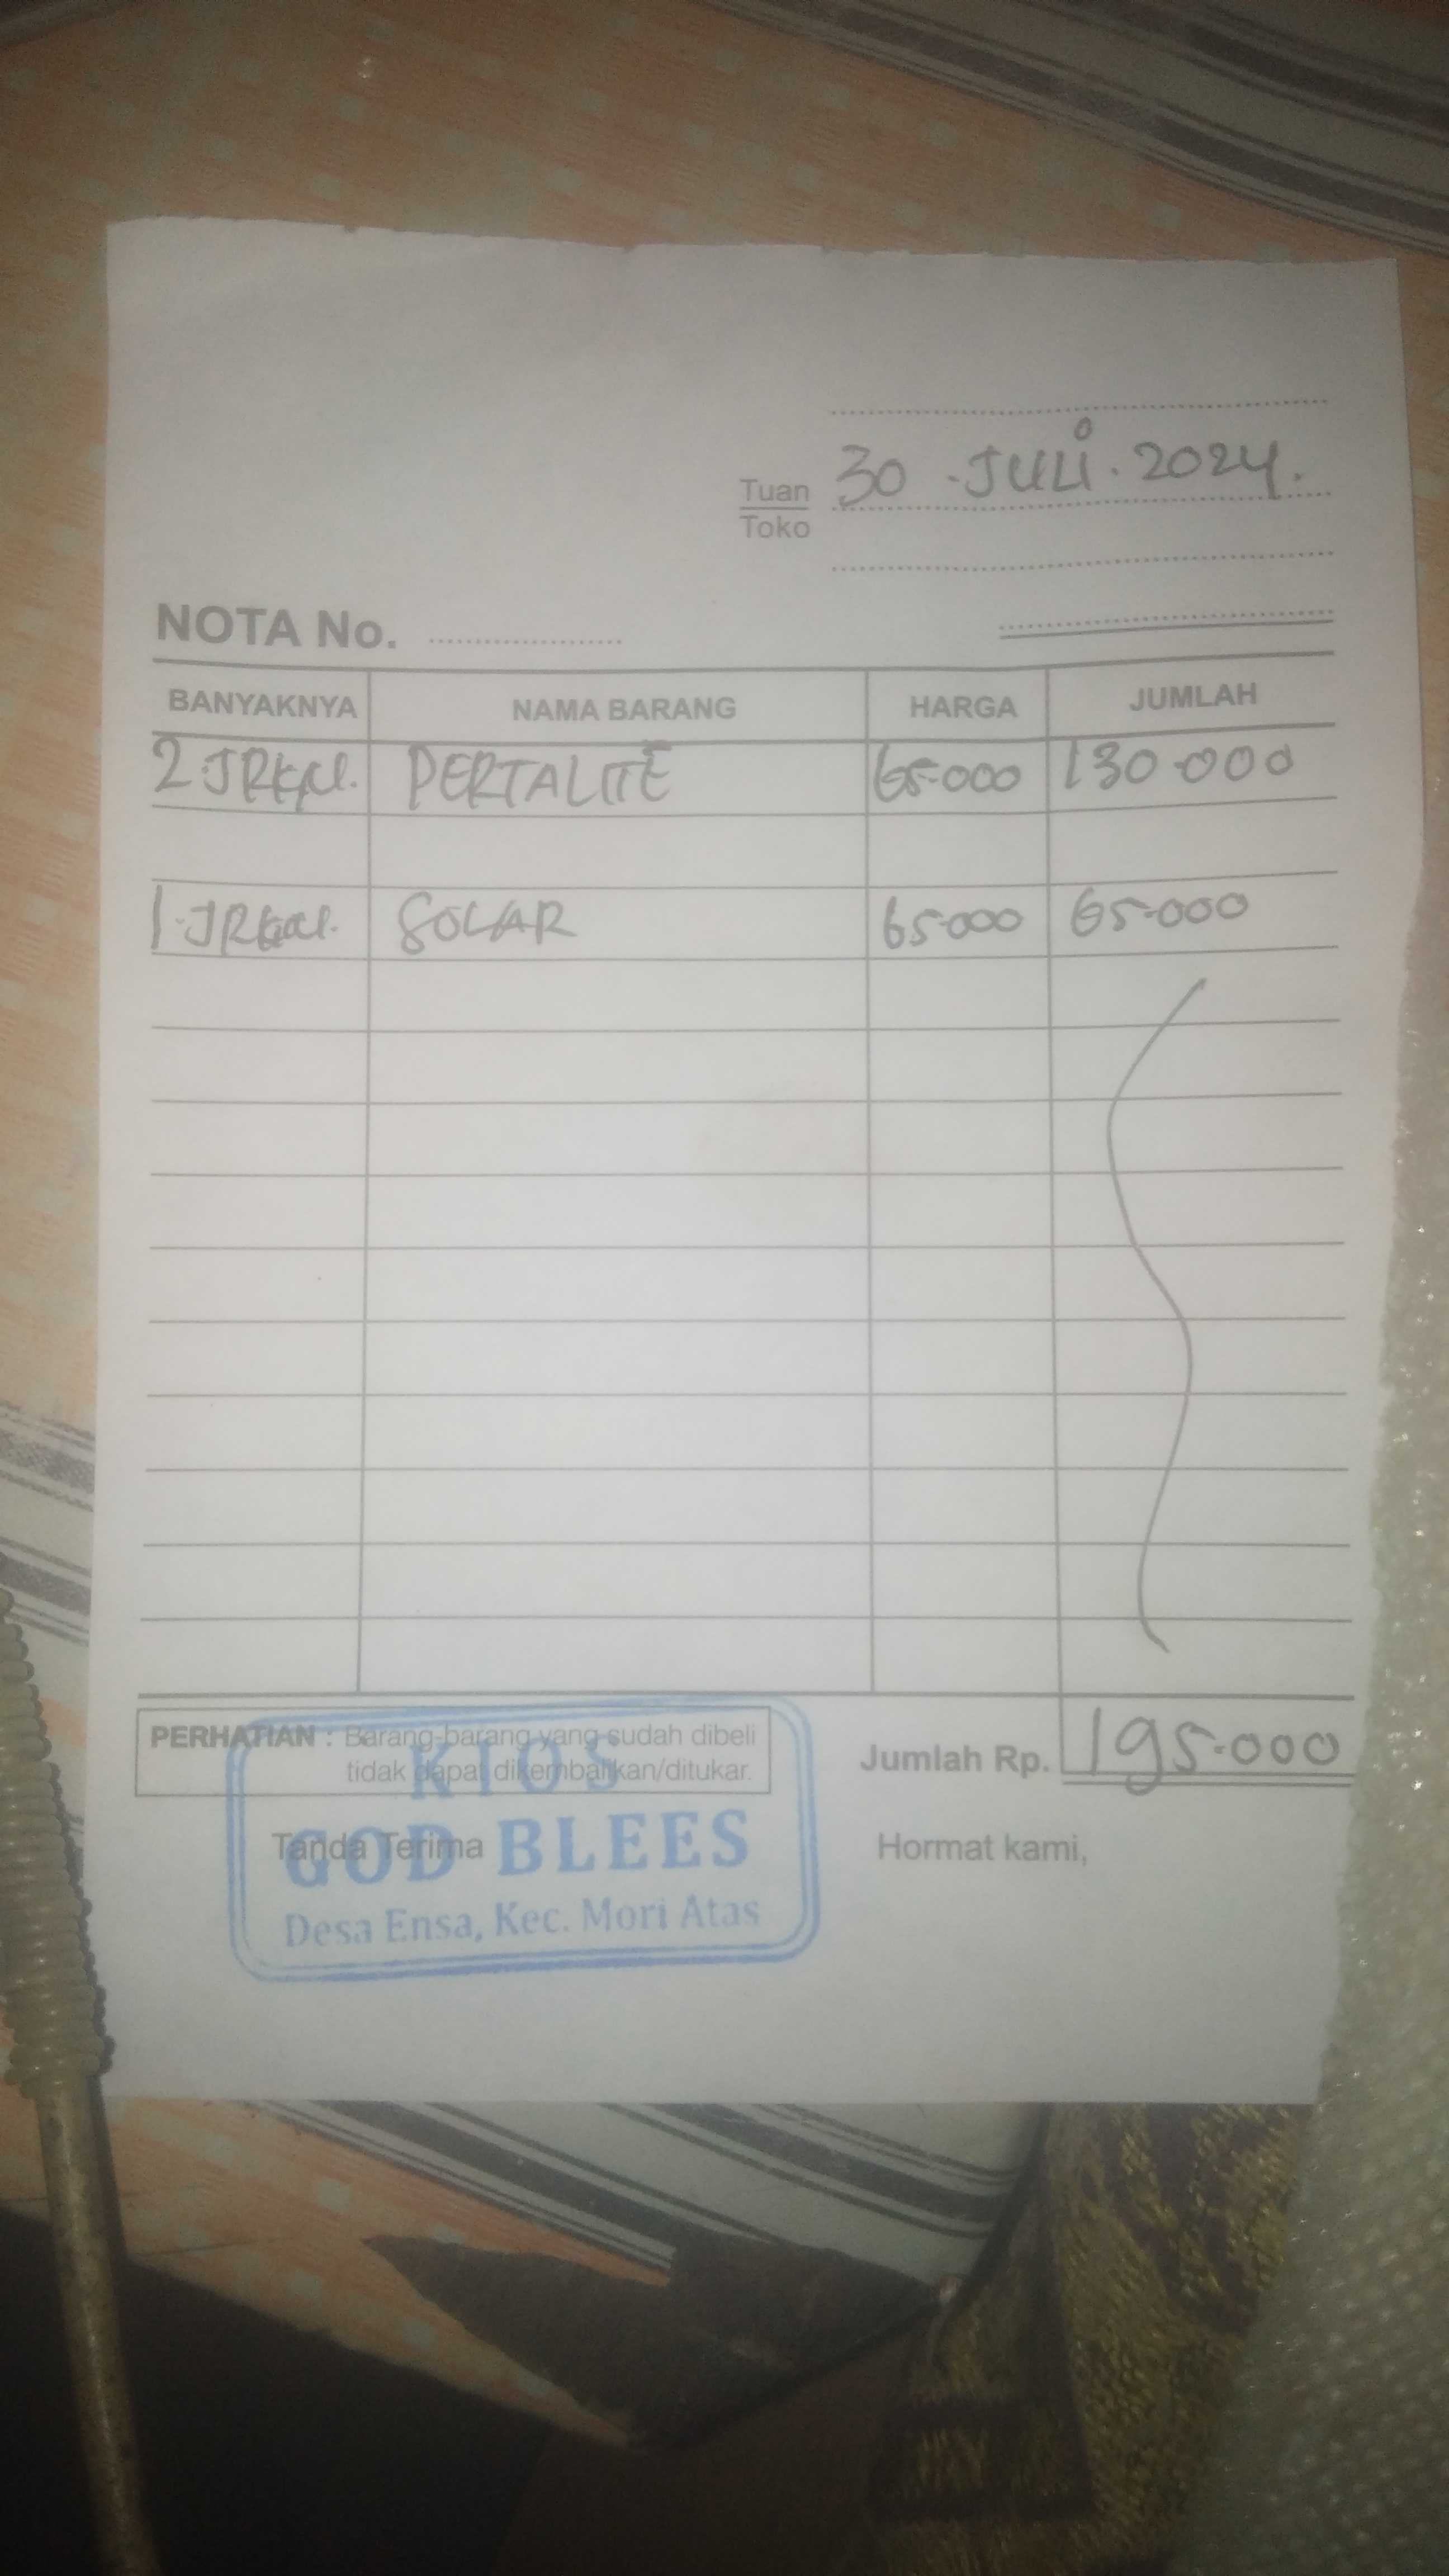 30 · JULI · 2024.
Tuan
Toko
NOTA No. ....................
BANYAKNYA NAMA BARANG HARGA JUMLAH
2 PERTALITE 65·000 130·000
1 SOLAR 65·000 65·000
PERHATIAN : Barang-barang yang sudah dibeli
tidak dapat dikembalikan/ditukar.
Jumlah Rp. 195·000
Tanda Terima Hormat kami,
KIOS
GOD BLEES
Desa Ensa, Kec. Mori Atas